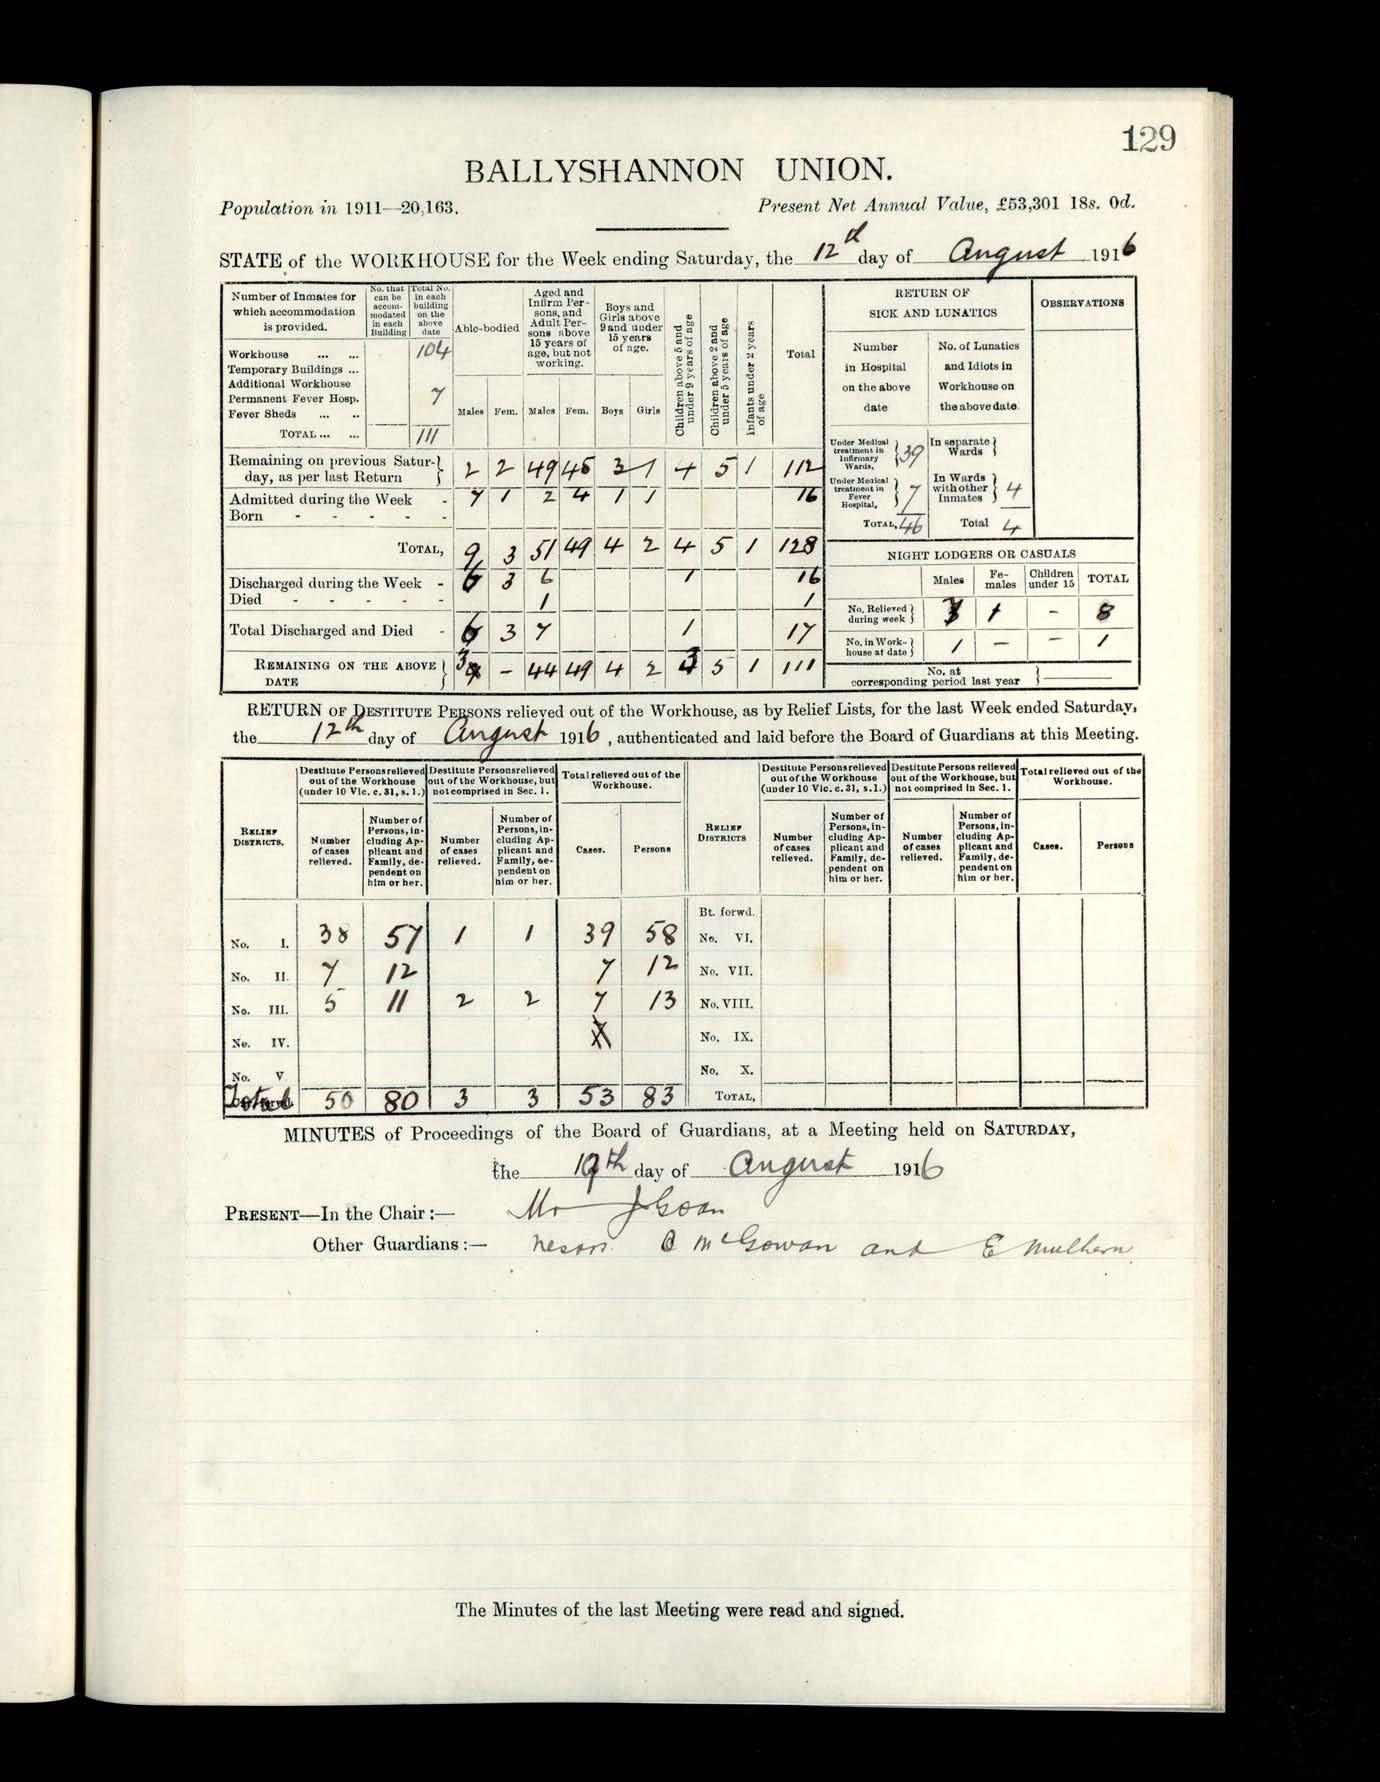 129
BALLYSHANNON UNION.
Population in 1911—20,163. Present Net Annual Value, £53,301 18s. 0d.
STATE of the WORKHOUSE for the Week ending Saturday, the 12th day of August 1916
Number of Inmates for which accommodation is provided. No. that can be accommodated in each Building Total No. in each building on the above date
Workhouse ... ... 104
Temporary Buildings ...
Additional Workhouse
Permanent Fever Hosp. 7
Fever Sheds ... ..
TOTAL ... ... 111
Able-bodied Aged and Infirm Persons, and Adult Persons above 15 years of age, but not working. Boys and Girls above 9 and under 15 years of age. Children above 5 and under 9 years of age Children above 2 and under 5 years of age Infants under 2 years of age Total
Males Fem. Males Fem. Boys Girls
Remaining on previous Saturday, as per last Return } 2 2 49 45 3 1 4 5 1 112
Admitted during the Week - 7 1 2 4 1 1 16
Born - - - - -
TOTAL, 9 3 51 49 4 2 4 5 1 128
Discharged during the Week - 6 3 6 1 16
Died - - - - - 1 1
Total Discharged and Died - 6 3 7 1 17
REMAINING ON THE ABOVE DATE } 3 – 44 49 4 2 3 5 1 111
RETURN OF SICK AND LUNATICS
Number in Hospital on the above date No. of Lunatics and Idiots in Workhouse on the above date.
Under Medical treatment in Infirmary Wards, } 39 In separate Wards }
Under Medical treatment in Fever Hospital, } 7 In Wards with other Inmates } 4
TOTAL, 46 Total 4
OBSERVATIONS
NIGHT LODGERS OR CASUALS
Males Females Children under 15 TOTAL
No. Relieved during week } 7 1 – 8
No. in Workhouse at date } 1 – – 1
No. at corresponding period last year }
RETURN OF DESTITUTE PERSONS relieved out of the Workhouse, as by Relief Lists, for the last Week ended Saturday,
the 12th day of August 1916, authenticated and laid before the Board of Guardians at this Meeting.
RELIEF DISTRICTS. Destitute Persons relieved out of the Workhouse (under 10 Vic. c. 31, s. 1.) Destitute Persons relieved out of the Workhouse, but not comprised in Sec. 1. Total relieved out of the Workhouse.
Number of cases relieved. Number of Persons, including Applicant and Family, dependent on him or her. Number of cases relieved. Number of Persons, including Applicant and Family, dependent on him or her. Cases. Persons
No. I. 38 57 1 1 39 58
No. II. 7 12 7 12
No. III. 5 11 2 2 7 13
No. IV.
No. V
Total 50 80 3 3 53 83
RELIEF DISTRICTS Destitute Persons relieved out of the Workhouse (under 10 Vic. c. 31, s.1.) Destitute Persons relieved out of the Workhouse, but not comprised in Sec. 1. Total relieved out of the Workhouse.
Number of cases relieved. Number of Persons, including Applicant and Family, dependent on him or her. Number of cases relieved. Number of Persons, including Applicant and Family, dependent on him or her. Cases. Persons
Bt. forwd.
No. VI.
No. VII.
No. VIII.
No. IX.
No. X.
TOTAL,
MINUTES of Proceedings of the Board of Guardians, at a Meeting held on SATURDAY,
the 19th day of August 1916
PRESENT—In the Chair:— Mr J Goan
Other Guardians:— Messrs. McGowan and E Mulhern
The Minutes of the last Meeting were read and signed.